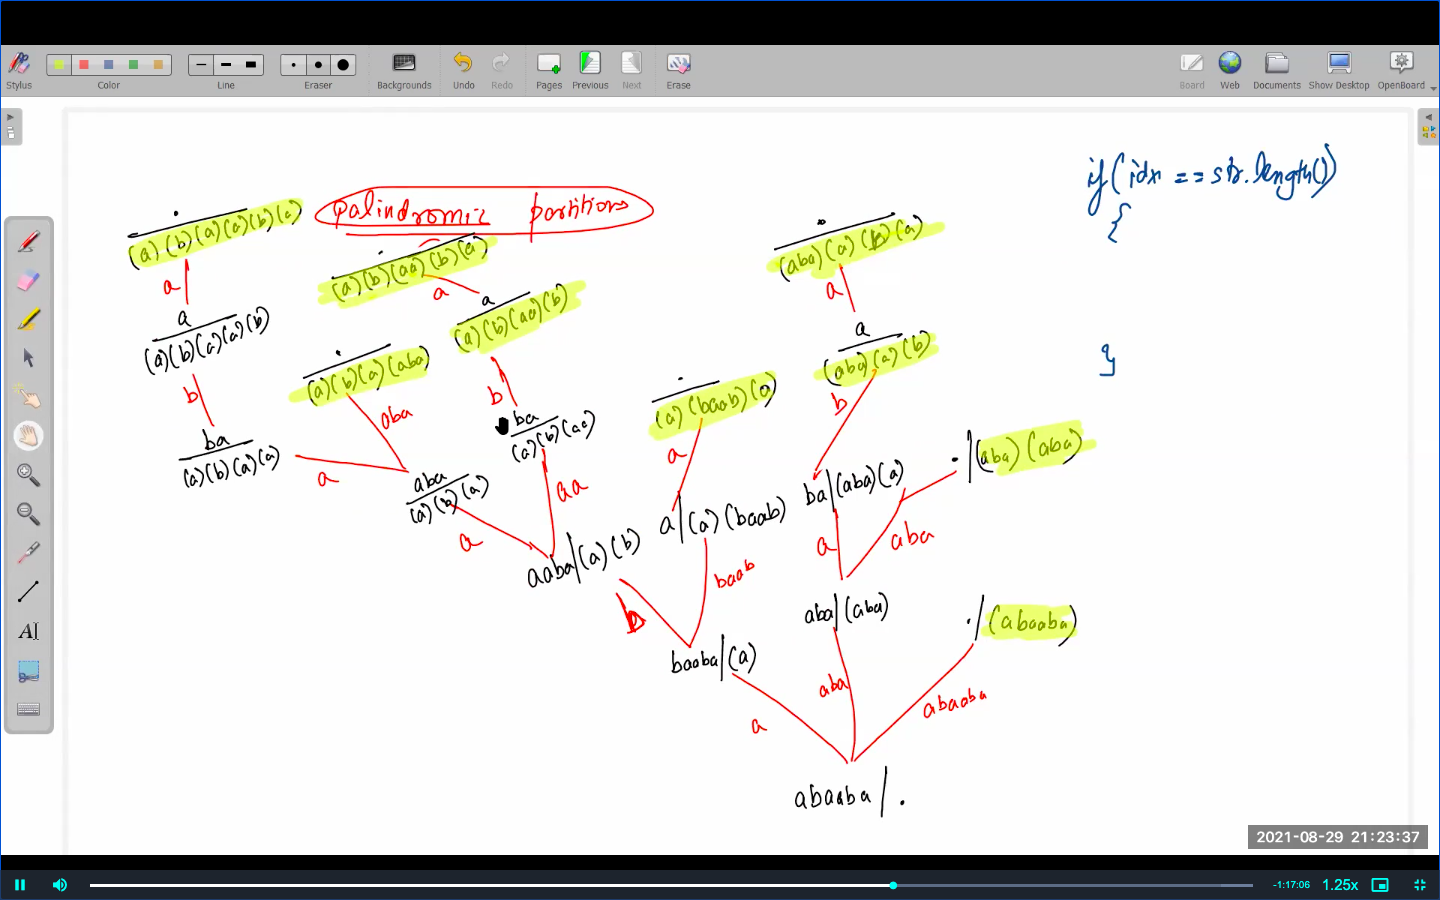 Stylus
Color
Line
Eraser
Backgrounds
Undo
Redo
Pages
Previous
Next
Erase
Board
Web
Documents
Show Desktop
OpenBoard
if(idx == str.length())
{
}
palindromic partitions
.
(a)(b)(a)(a)(b)(a)
.
(a)(b)(aa)(b)(a)
.
(aba)(a)(b)(a)
a
a
a
a
(a)(b)(aa)(b)
a
(a)(b)(a)(a)(b)
a
(aba)(a)(b)
.
(a)(b)(a)(aba)
.
(a)(baab)(a)
b
aba
b
b
ba
(a)(b)(aa)
ba
(a)(b)(a)(a)
a
.|(aba)(aba)
a
aba
(a)(b)(a)
aa
ba|(aba)(a)
a|(a)(baab)
a
aaba|(a)(b)
a
aba
baab
b
aba|(aba)
.|(abaaba)
baaba|(a)
a
aba
abaaba
abaaba|.
AI
2021-08-29 21:23:37
-1:17:06
1.25x